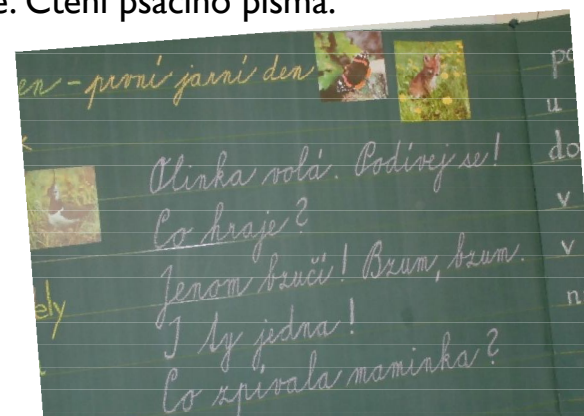 Čtení psacího písma.
en - první jarní den
Olinka volá. Podívej se!
Co hraje?
Jenom bzučí! Bzum, bzum.
I ty jedna!
Co zpívala maminka?
ely
po
u
do
v
v
n